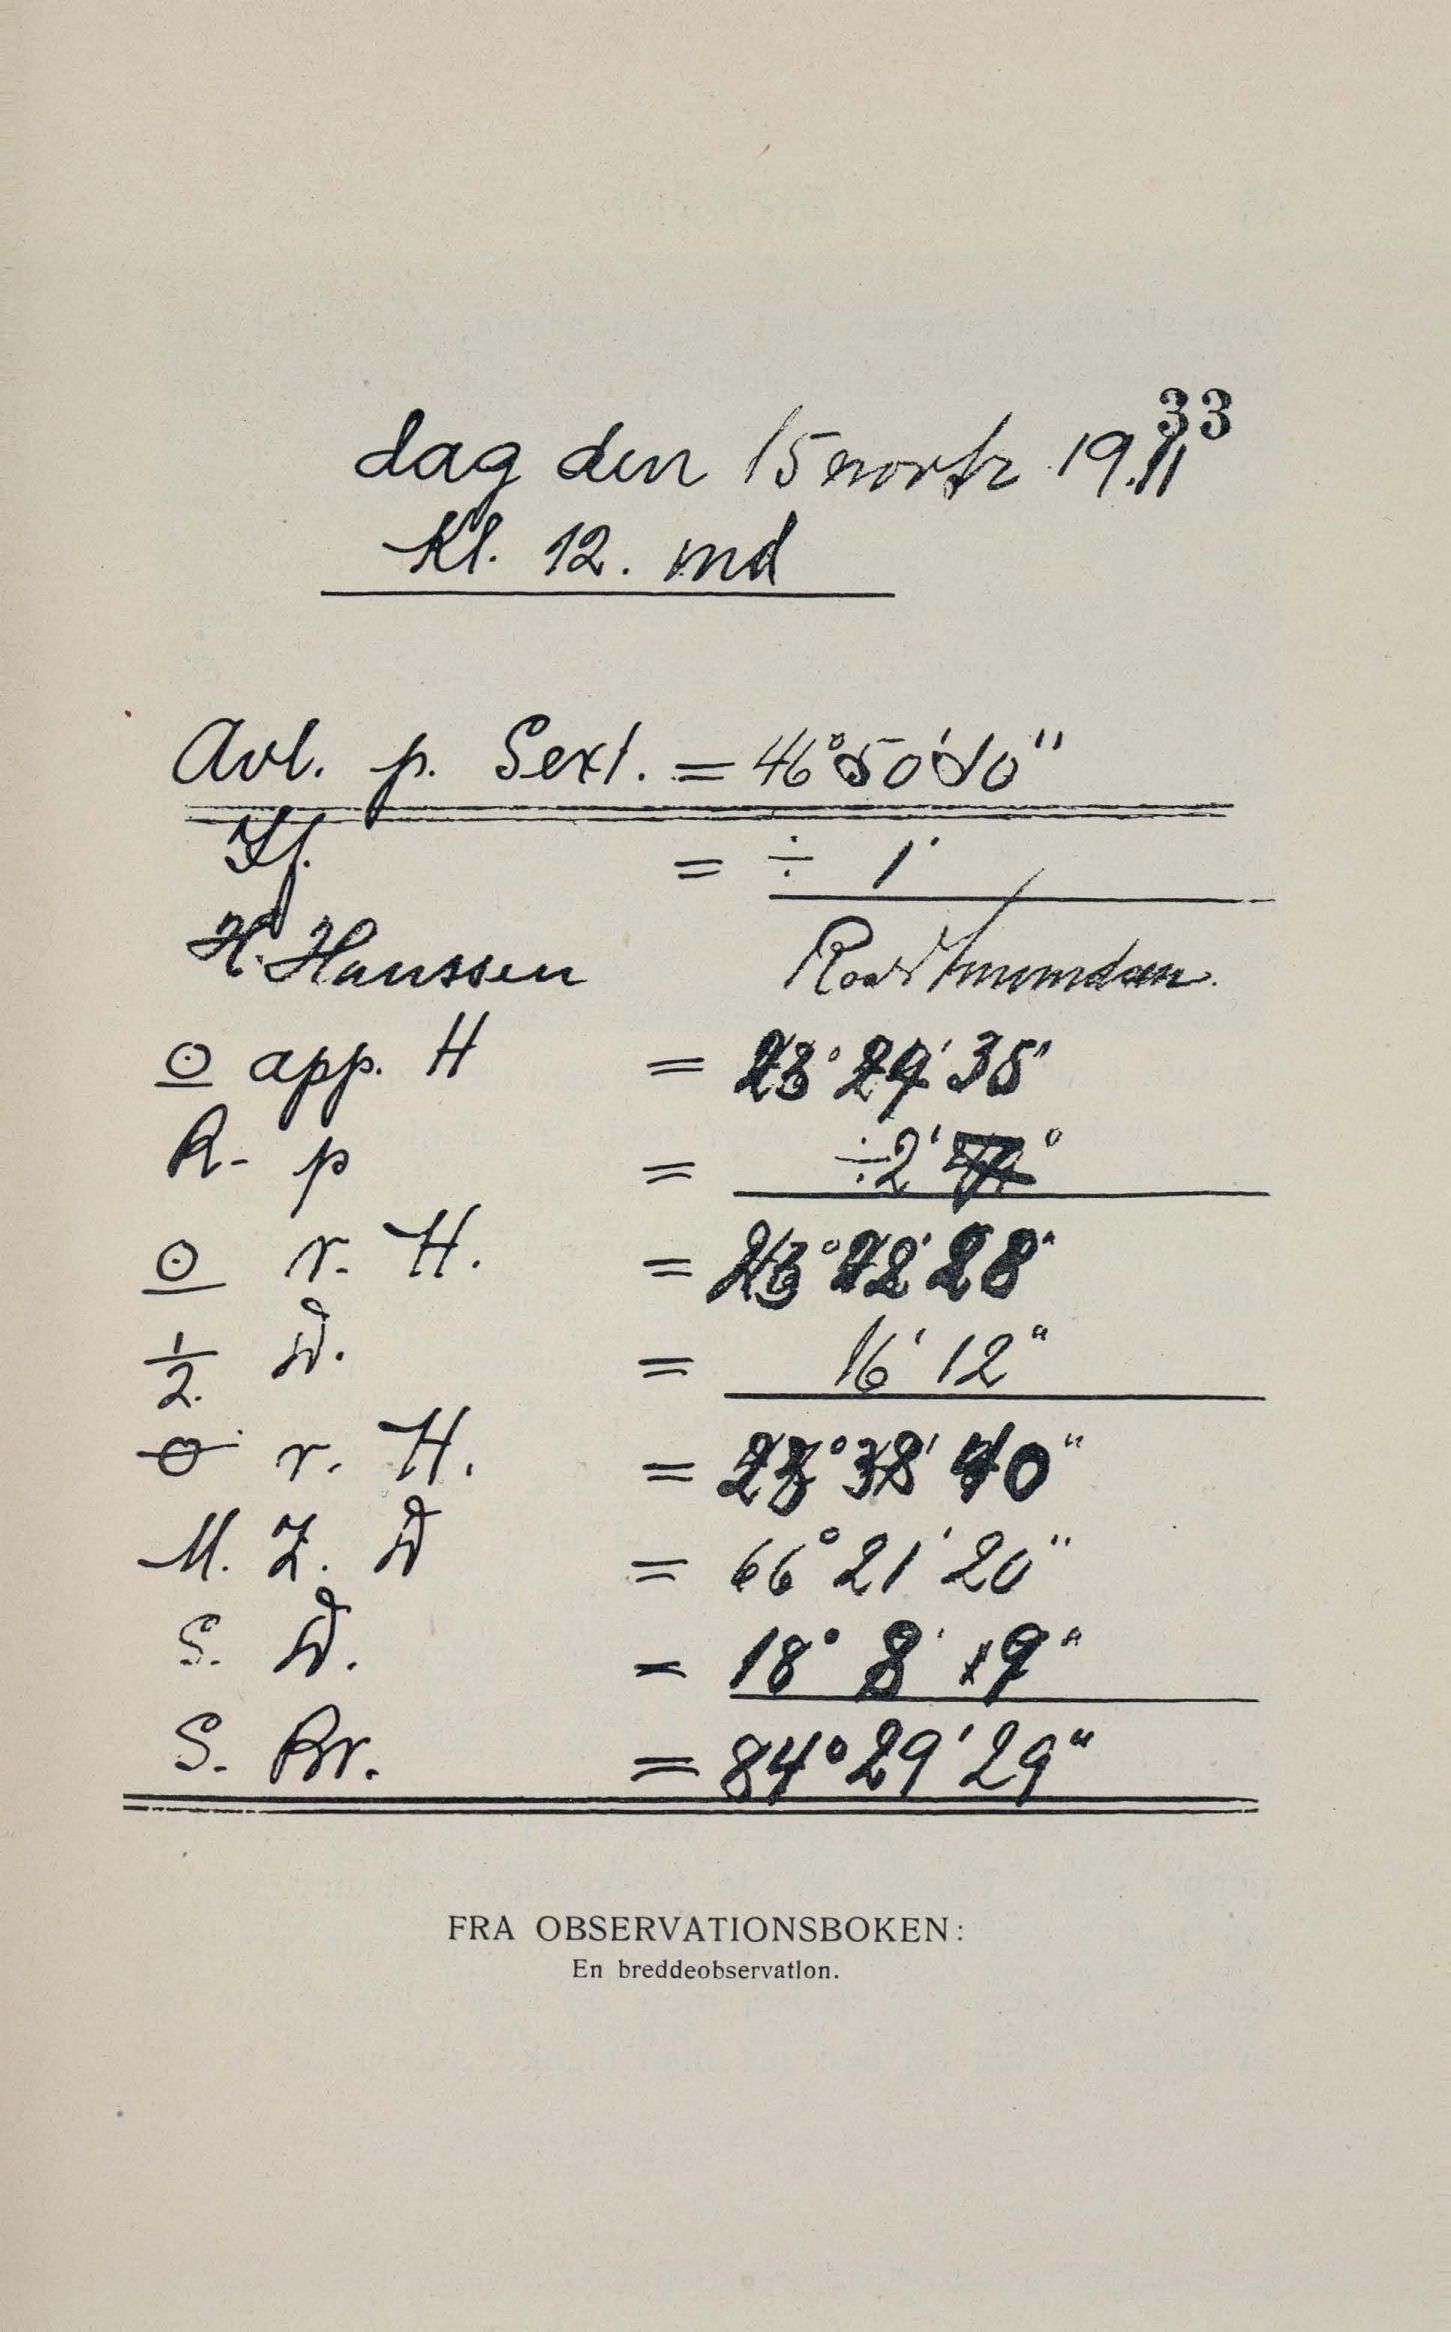 33
dag den 15 novbr 19.11
Kl. 12. md
Avl. p. Sext. = 46° 50' 10"
If. = ÷ 1'
H. Hanssen Roald Amundsen.
☉ app. H = 23° 24' 35"
R- p = ÷ 2'
☉ r. H. = 23° 22' 28"
1/2 D. = 16' 12"
⦵ r. H. = 23° 38' 40"
M. Z. D = 66° 21' 20"
S. D. = 18° 8' 9"
S. Br. = 84° 29' 29"
FRA OBSERVATIONSBOKEN:
En breddeobservation.